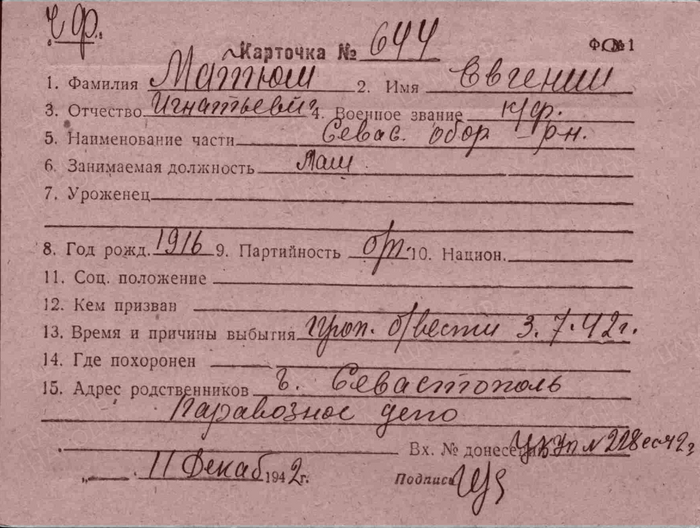 Ч.Ф.
Карточка № 644 Ф. № 1
1. Фамилия Матюш 2. Имя Евгений
3. Отчество Игнатьевич 4. Военное звание к/ф.
5. Наименование части Севас. обор. р-н.
6. Занимаемая должность Маш
7. Уроженец
8. Год рожд. 1916 9. Партийность б/п. 10. Национ.
11. Соц. положение
12. Кем призван
13. Время и причины выбытия проп. б/вести 3.7.42 г.
14. Где похоронен
15. Адрес родственников г. Севастополь
Паравозное депо
Вх. № донесения № 228 сс 42 г
„ 11 Декаб 1942 г. Подпись